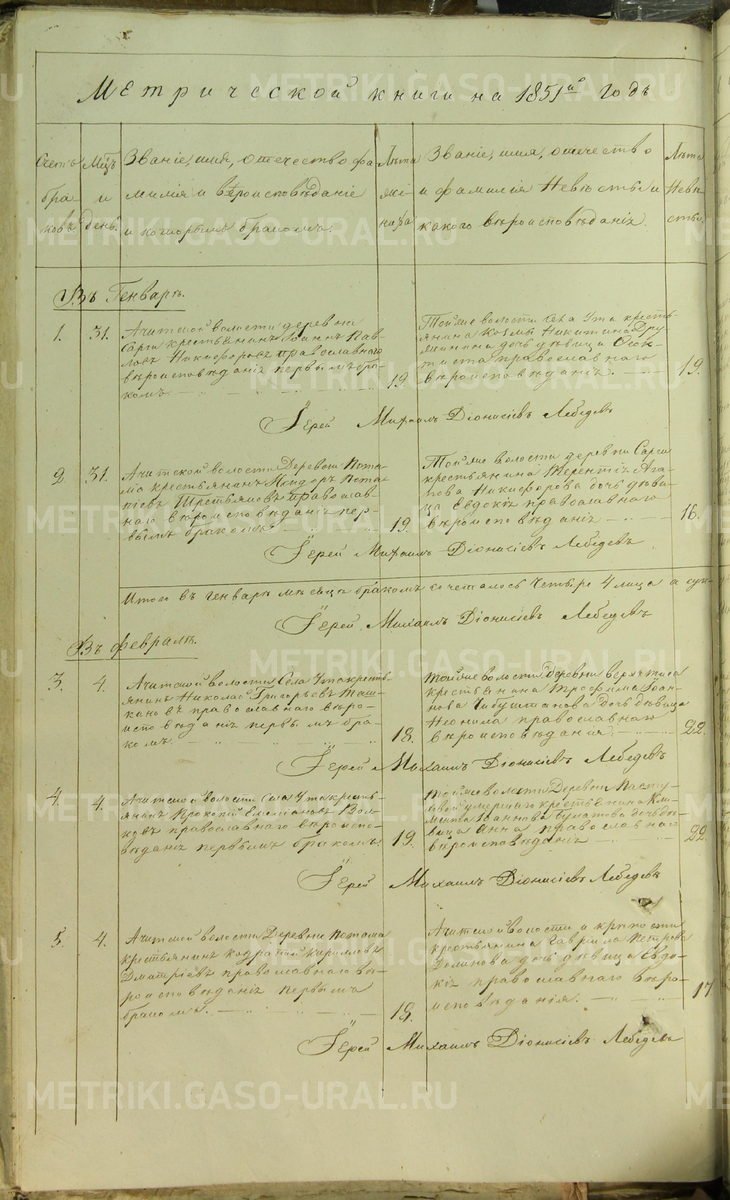 Метрической книги на 1851й годъ
Счетъ браковъ
Мцъ и день.
Званіе, имя, отечество фа-
милія и вѣроисповѣданіе
и которымъ бракомъ.
Лѣта жениха
Званіе, имя, отечество
и фамилія Невѣсты и
какого вѣроисповѣданія.
Лѣта Невѣсты.
Въ Генварѣ.
1. 31.
Ачитской волости деревни
Сарги крестьянинъ Іоаннъ Пав-
ловъ Никифоровъ православнаго
вѣроисповѣданія первымъ бра-
комъ.
19.
Той же волости села Ута кресть-
янина Козьмы Никитина
дочь дѣвица
православнаго
вѣроисповѣданія.
19.
Іерей Михаилъ Діонисіевъ Лебедевъ
2. 31.
Ачитской волости Деревни Потама
крестьянинъ
православ-
наго вѣроисповѣданія пер-
вымъ бракомъ.
19.
Той же волости деревни Сарги
крестьянина Терентія Ага-
пова Никифорова дочь дѣви-
ца Евдокія православнаго
вѣроисповѣданія
16.
Іерей Михаилъ Діонисіевъ Лебедевъ
Итого въ генварѣ мѣсяцѣ бракомъ сочеталось четыре 4 лица
Іерей Михаилъ Діонисіевъ Лебедевъ
Въ февралѣ.
3. 4.
Ачитской волости Села Ута кресть-
янинъ Николай Григорьевъ Таш-
кановъ православнаго вѣро-
исповѣданія первымъ бра-
комъ.
18.
Той же волости деревни
крестьянина Трофима Іоан-
нова дочь дѣвица
Неонила православнаго
вѣроисповѣданія.
22.
Іерей Михаилъ Діонисіевъ Лебедевъ
4. 4.
Ачитской волости Села Ута кресть-
янинъ Прокопій Емеліановъ Вол-
ковъ православнаго вѣроиспо-
вѣданія первымъ бракомъ.
19.
Той же волости Деревни
умершаго крестьянина Кли-
мента Іоаннова дочь дѣ-
вица Анна православнаго
вѣроисповѣданія
22.
Іерей Михаилъ Діонисіевъ Лебедевъ
5. 4.
Ачитской волости Деревни Потама
крестьянинъ Кирилловъ
Дмитріевъ православнаго вѣ-
роисповѣданія первымъ
бракомъ.
18.
Ачитской волости и крѣпости
крестьянина Гавриила Петрова
дочь дѣвица Евдо-
кія православнаго вѣро-
исповѣданія.
17
Іерей Михаилъ Діонисіевъ Лебедевъ
METRIKI.GASO-URAL.RU